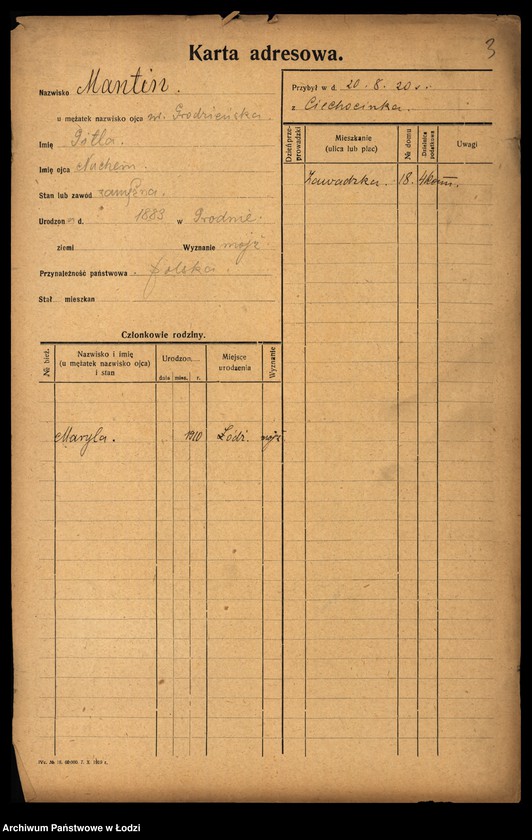 3
Karta adresowa.
Nazwisko Mantin.
u mężatek nazwisko ojca Grodzieńska
Imię Gitla.
Imię ojca Nachem
Stan lub zawód zamężna.
Urodzon d. 1883 w Grodnie
ziemi Wyznanie mojż
Przynależność państwowa polska
Stał mieszkan
Przybył w d. 20. 8. 20
z Ciechocinka.
Dzień przeprowadzki
Mieszkanie (ulica lub plac)
№ domu
Dzielnica podatkowa
Uwagi
Zawadzka. 18. 4
Członkowie rodziny.
№ bież.
Nazwisko i imię (u mężatek nazwisko ojca) i stan
Urodzon
dnia mies. r.
Miejsce urodzenia
Wyznanie
Maryla. 1910 Łódź. mojż
Archiwum Państwowe w Łodzi